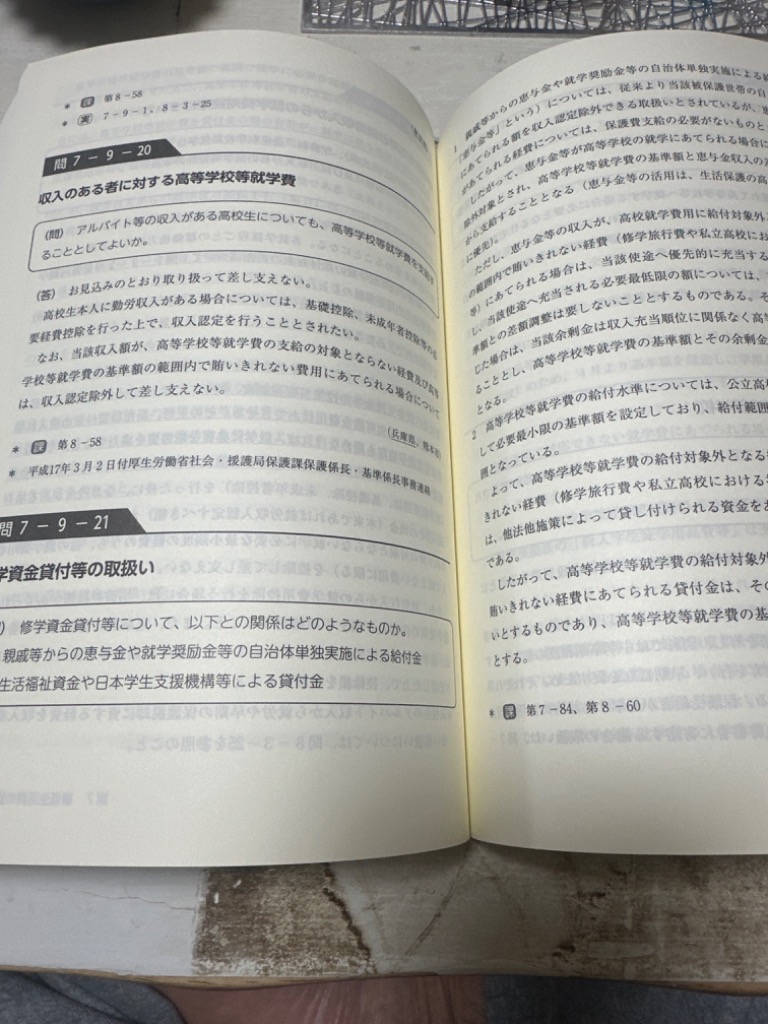 * 課 第8－58
* 実 7－9－1、8－3－25
問7－9－20
収入のある者に対する高等学校等就学費
(問) アルバイト等の収入がある高校生についても、高等学校等就学費を支給す
ることとしてよいか。
(答) お見込みのとおり取り扱って差し支えない。
高校生本人に勤労収入がある場合については、基礎控除、未成年者控除等の必
要経費控除を行った上で、収入認定を行うこととされたい。
なお、当該収入額が、高等学校等就学費の支給の対象とならない経費及び高等
学校等就学費の基準額の範囲内で賄いきれない費用にあてられる場合について
は、収入認定除外して差し支えない。
(兵庫県、熊本市)
* 課 第8－58
* 平成17年3月2日付厚生労働省社会・援護局保護課保護係長・基準係長事務連絡
問7－9－21
学資金貸付等の取扱い
) 修学資金貸付等について、以下との関係はどのようなものか。
親戚等からの恵与金や就学奨励金等の自治体単独実施による給付金
生活福祉資金や日本学生支援機構等による貸付金
1 親戚等からの恵与金や就学奨励金等の自治体単独実施による給
「恵与金等」という）については、従来より当該被保護世帯の自
にあてられる額を収入認定除外できる取扱いとされているが、恵
があてられる経費については、保護費支給の必要がないものと
したがって、恵与金等が高等学校の就学にあてられる場合に
除外対象とされ、高等学校等就学費の基準額と恵与金収入の
から支給することとなる（恵与金等の活用は、生活保護の高
に優先）。
ただし、恵与金等の収入が、高校就学費用に給付対象外
の範囲内で賄いきれない経費（修学旅行費や私立高校にお
等）にあてられる場合は、当該使途へ優先的に充当する
し、当該使途へ充当される必要最低限の額については、
準額との差額調整は要しないこととするものである。そ
じた場合は、当該余剰金は収入充当順位に関係なく高
ることとし、高等学校等就学費の基準額とその余剰金
となる。
2 高等学校等就学費の給付水準については、公立高
して必要最小限の基準額を設定しており、給付範囲
囲となっている。
よって、高等学校等就学費の給付対象外となる
きれない経費（修学旅行費や私立高校における
は、他法他施策によって貸し付けられる資金をあ
である。
したがって、高等学校等就学費の給付対象外
賄いきれない経費にあてられる貸付金は、その
いとするものであり、高等学校等就学費の基
とする。
* 課 第7－84、第8－60